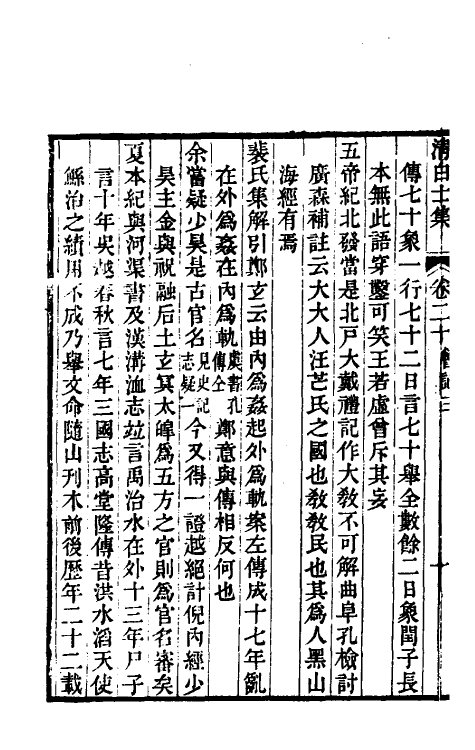 清白士集　卷二十
傳七十象一行七十二日言七十舉全數餘二日象閏子長
本無此語穿鑿可笑王若虛曾斥其妄
五帝紀北發當是北戸大戴禮記作大敎不可解曲阜孔檢討
廣森補註云大大人汪芒氏之國也敎敎民也其爲人黑山
海經有焉
裴氏集解引鄭玄云由內爲姦起外爲軌案左傳成十七年亂
在外爲姦在內爲軌虞書孔傳仝鄭意與傳相反何也
余嘗疑少昊是古官名見史記志疑一今又得一證越絕計倪內經少
昊主金與祝融后土玄冥太皞爲五方之官則爲官名審矣
夏本紀與河渠書及漢溝洫志竝言禹治水在外十三年尸子
言十年吳越春秋言七年三國志高堂隆傳昔洪水滔天使
鯀治之績用不成乃舉文命隨山刊木前後歷年二十二載